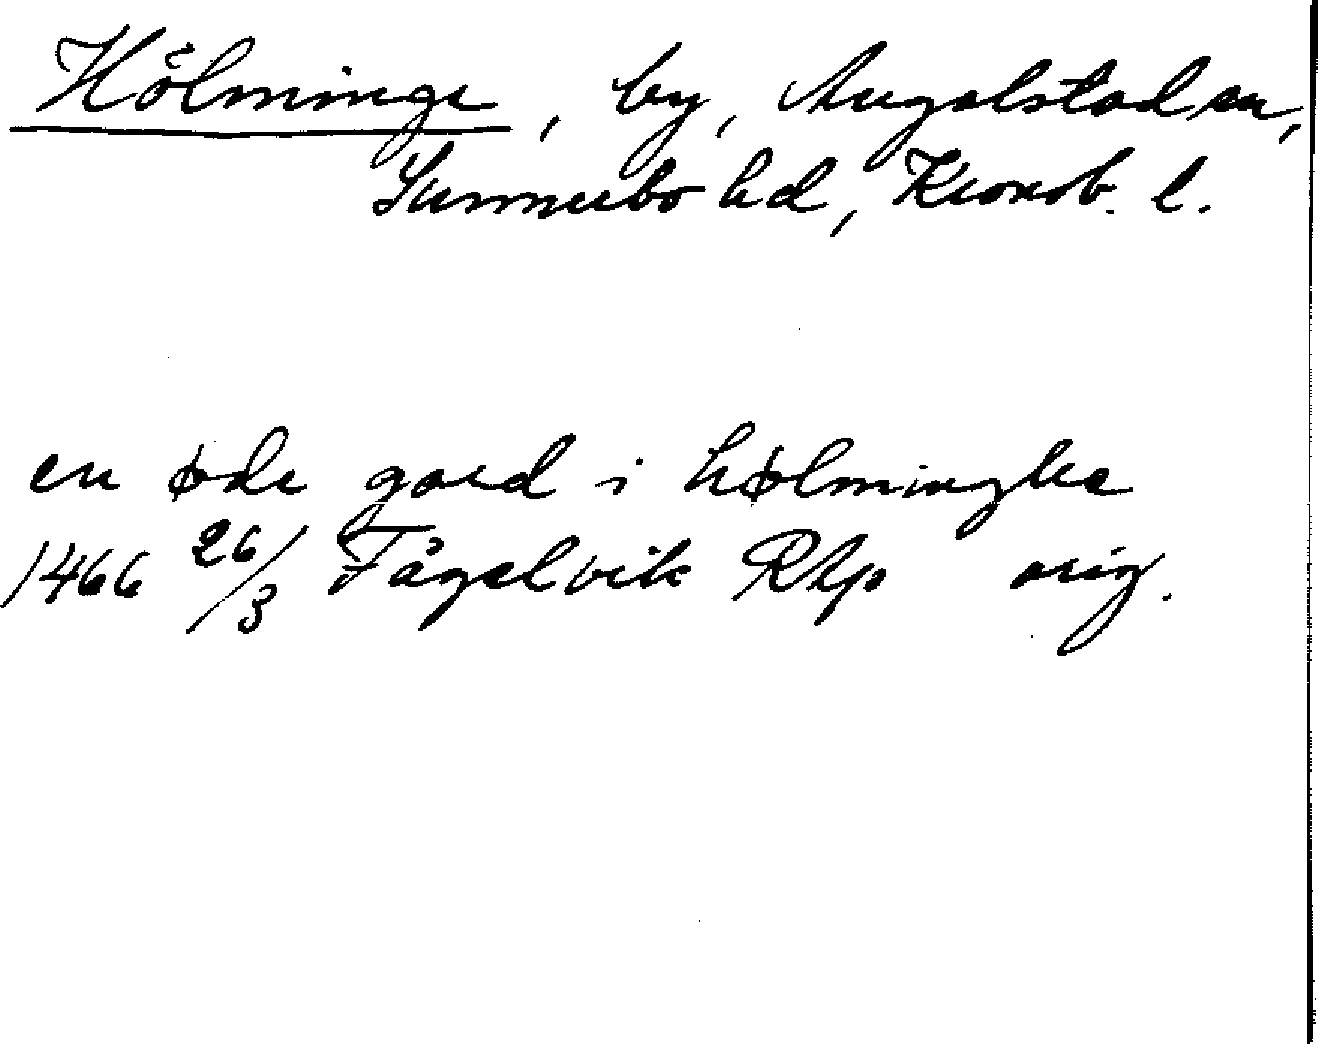 Hölminge, by, Angelstad sn,
Sunnerbo hd, Kronob. l.
en øde gard i hølminghe
1466 26/3 Fågelvik RAp orig.